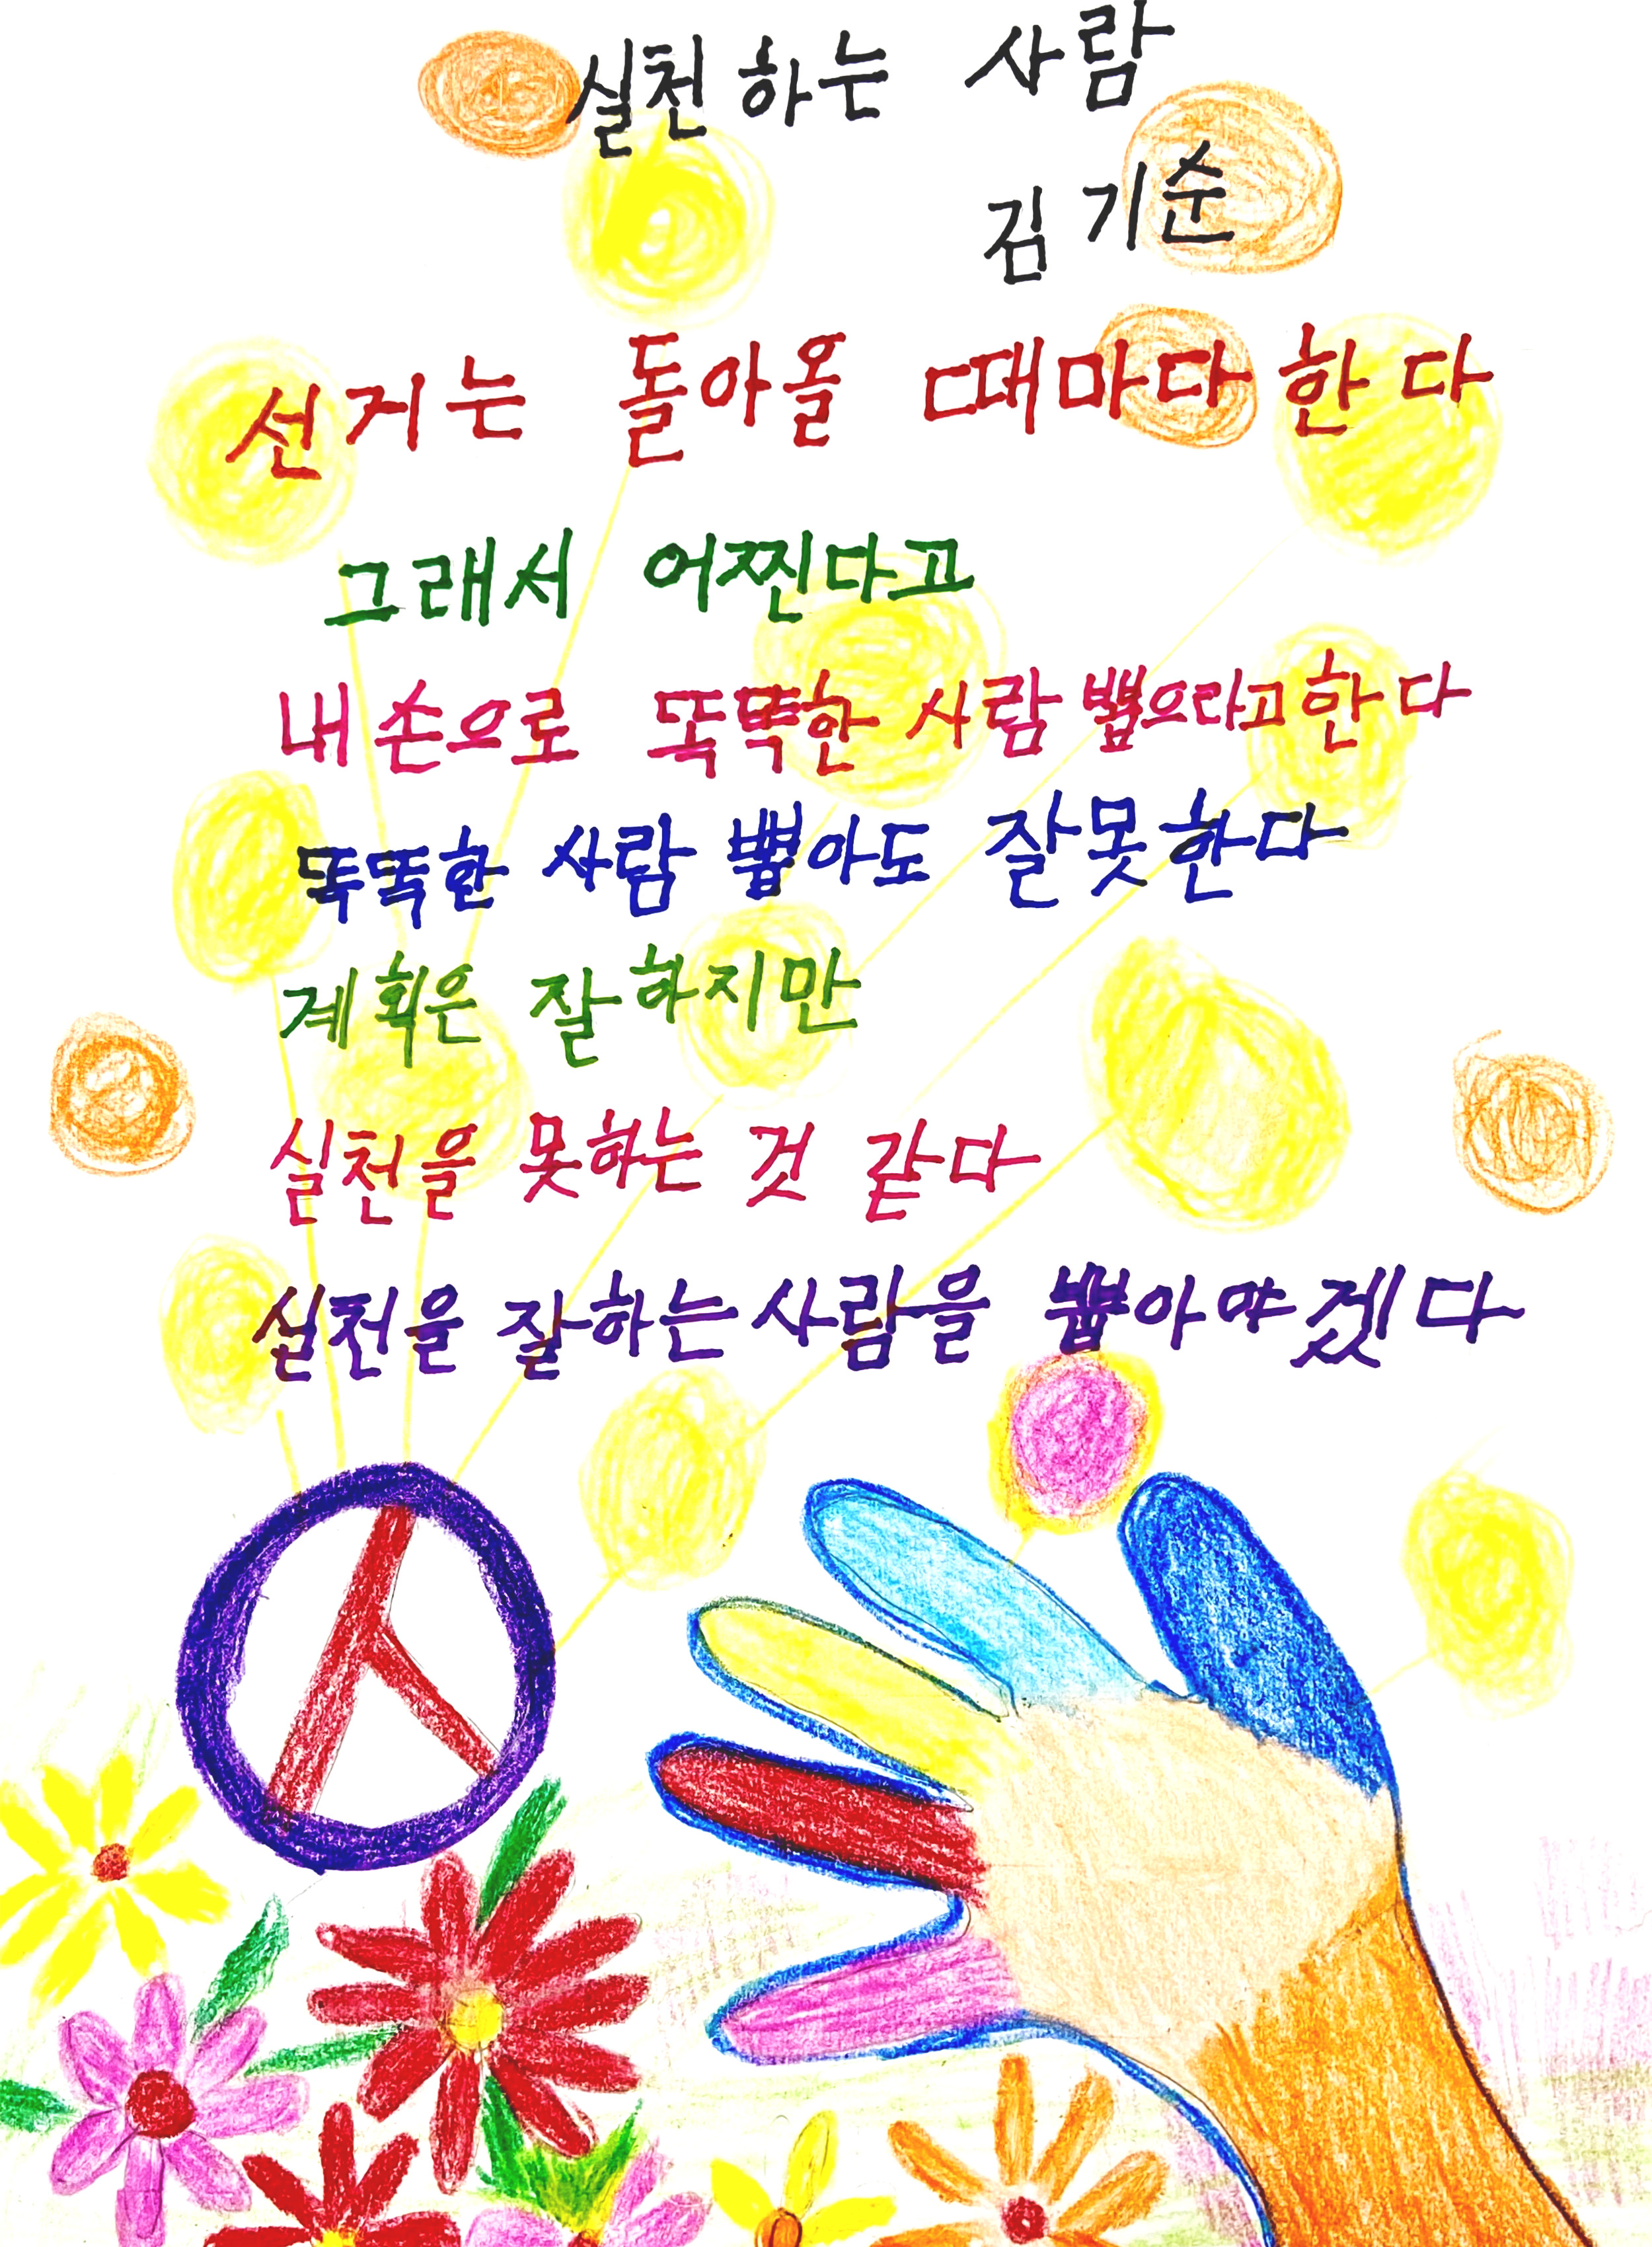 실천하는 사람
김기순
선거는 돌아올 때마다 한다
그래서 어찐다고
내 손으로 똑똑한 사람 뽑으라고 한다
똑똑한 사람 뽑아도 잘못한다
계획은 잘하지만
실천을 못하는 것 같다
실천을 잘하는 사람을 뽑아야겠다